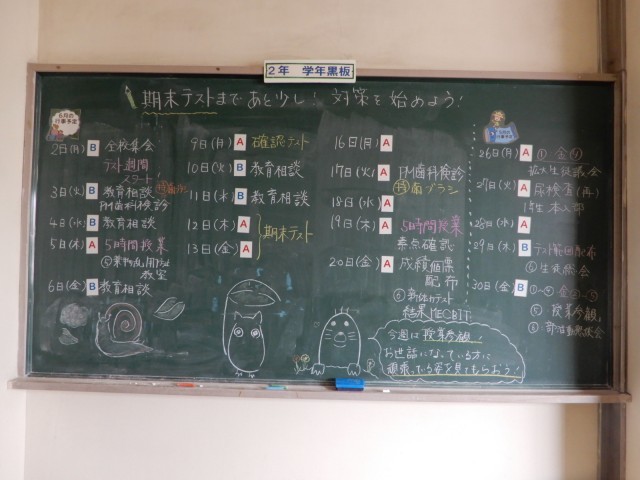 2年 学年黒板
期末テストまで あと少し! 対策を始めよう!
6月の
行事予定
2日(月) B 全校集会
テスト週間
スタート
3日(火) B 教育相談
PM歯科検診
4日(水) B 教育相談
5日(木) A 5時間授業
教室
6日(金) B 教育相談
9日(月) A 確認テスト
10日(火) B 教育相談
11日(水) B 教育相談
12日(木) A
13日(金) A
期末テスト
16日(月) A
17日(火) A PM歯科検診
持 歯ブラシ
18日(水) A
19日(木) A 5時間授業
素点確認
20日(金) A 成績個票
配布
結果
26日(月) A
拡大生徒議会
27日(火) A 尿検査(再)
28日(水) A
29日(木) B テスト範囲配布
⑥生徒総会
30日(金) B
⑤ 授業参観
今週は授業参観!
お世話になっている方に
頑張っている姿を見てもらおう!